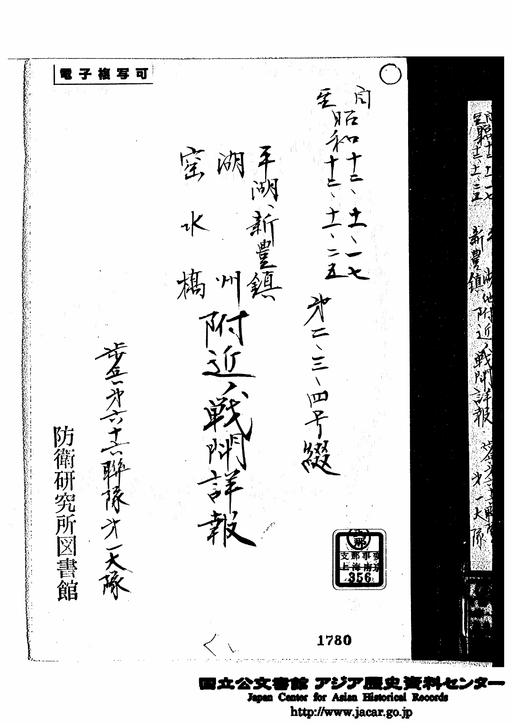 電子複写可
自 昭和十二、十一、一七
至 昭和十二、十一、二五
第二、三、四号綴
平湖、新豊鎮
湖州
窑水橋
附近ノ戦闘詳報
歩兵第六十六聯隊第一大隊
防衛研究所図書館
支那
支那事変
上海南京
356
1780
国立公文書館 アジア歴史資料センター
Japan Center for Asian Historical Records
http://www.jacar.go.jp